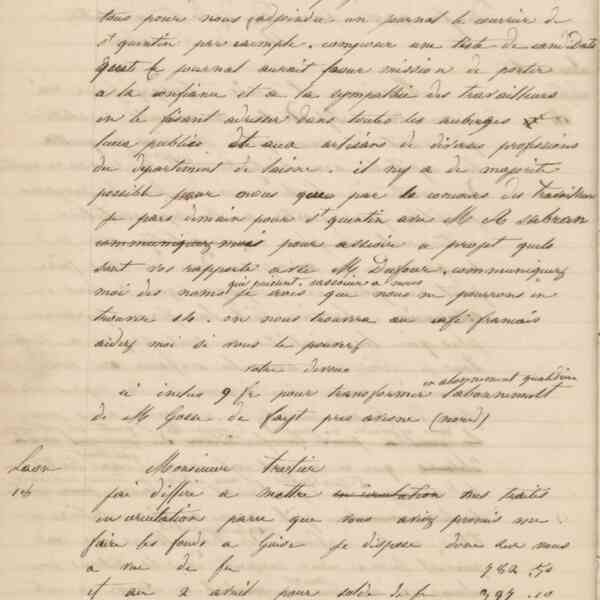 tous pour nous adjoindre un journal le courrier de
st quentin par exemple. composer une liste de candidats
quest le journal aurait pour mission de porter
a la confiance et a la sympathie des travailleurs
en le fesant adresser dans toutes les auberges et
lieux publics et aux artisans de diverses professions
du departement de laisne. il ny a de majorité
possible pour nous que par le concours des travailleurs
je pars demain pour st quentin avec M A
communiquez mois pour asseoir ce projet quels
sont vos rapports avec M. Dufour. communiquez
moi des noms qui puisent sassocier a nous
je crois que nous ne pourrons en
trouver 40. on nous trouvera au café francais
aidez moi si vous le pouvez
votre devoué
ci inclus 9 fr pour transformer en abonnement quotidien labonnement
de M Gosse de fayt pres avesne (nord)
Laon
Monsieur trestier
jai differé a mettre en circulation nos traites
en circulation parce que vous aviez promis me
faire les fonds a Guise je dispose donc sur vous
a vue de fr 982 .50
et au 2 avril pour solde de fr 397 .10